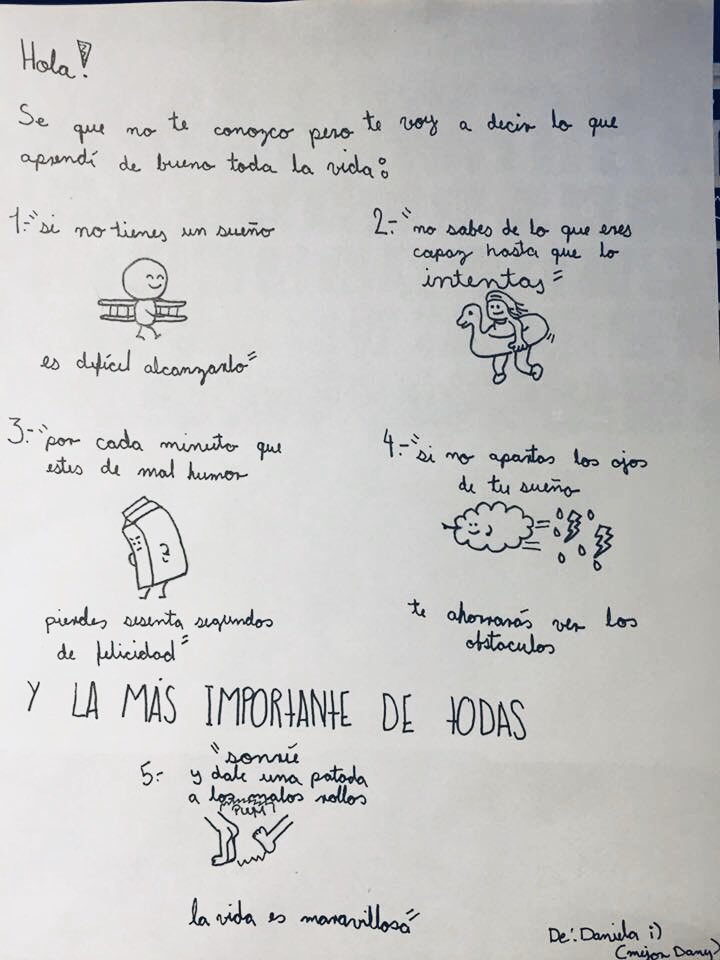 Hola!
Se que no te conozco pero te voy a decir lo que
aprendí de bueno toda la vida:
1.- "si no tienes un sueño
es difícil alcanzarlo"
2.- "no sabes de lo que eres
capaz hasta que lo
intentas"
3.- "por cada minuto que
estes de mal humor
pierdes sesenta segundos
de felicidad"
4.- "si no apartas los ojos
de tu sueño
te ahorrarás ver los
obstaculos
Y LA MÁS IMPORTANTE DE TODAS
"sonríe
5.- y dale una patada
a los malos rollos
PUM!
la vida es maravillosa"
De: Daniela ;)
(mejor Dany)